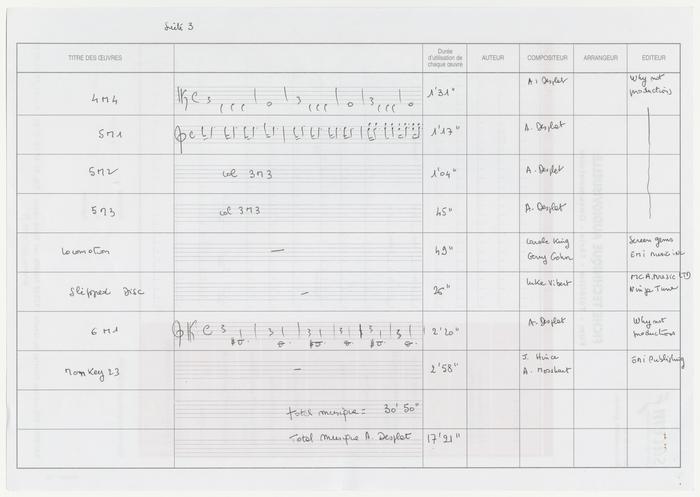 Suite 3
TITRE DES ŒUVRES
Durée
d'utilisation de
chaque œuvre
AUTEUR
COMPOSITEUR
ARRANGEUR
ÉDITEUR
4M4
1'31"
A. Desplat
Why not
productions
5M1
1'17"
A. Desplat
5M2
col 3M3
1'04"
A. Desplat
5M3
col 3M3
45"
A. Desplat
Locomotion
49"
Carole King
Gerry Goffin
Screen gems
EMI music
Slipped Disc
26"
Luke Vibert
MCA Music LTD
Ninja Tune
6M1
2'20"
A. Desplat
Why not
productions
Monkey 23
2'58"
J. Hince
A. Mosshart
EMI Publishing
Total musique = 30'50"
Total musique A. Desplat 17'21"